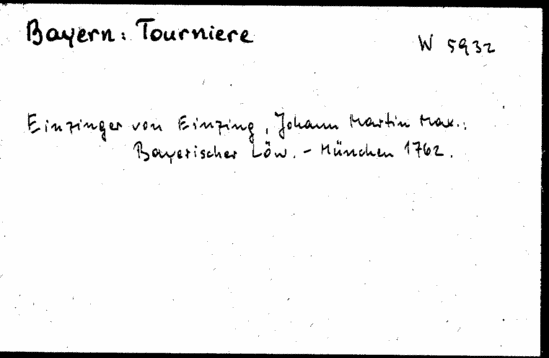 Bayern: Tourniere
W 5932
Einzinger von Einzing, Johann Martin Max.:
Bayerischer Löw. - München 1762.